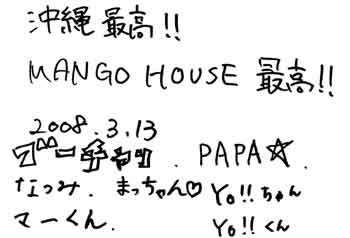 沖縄最高!!
MANGO HOUSE 最高!!
2008.3.13
マーチャリ. PAPA☆.
なつみ. まっちゃん♡ Yo!!ちゃん
マーくん. Yo!!くん